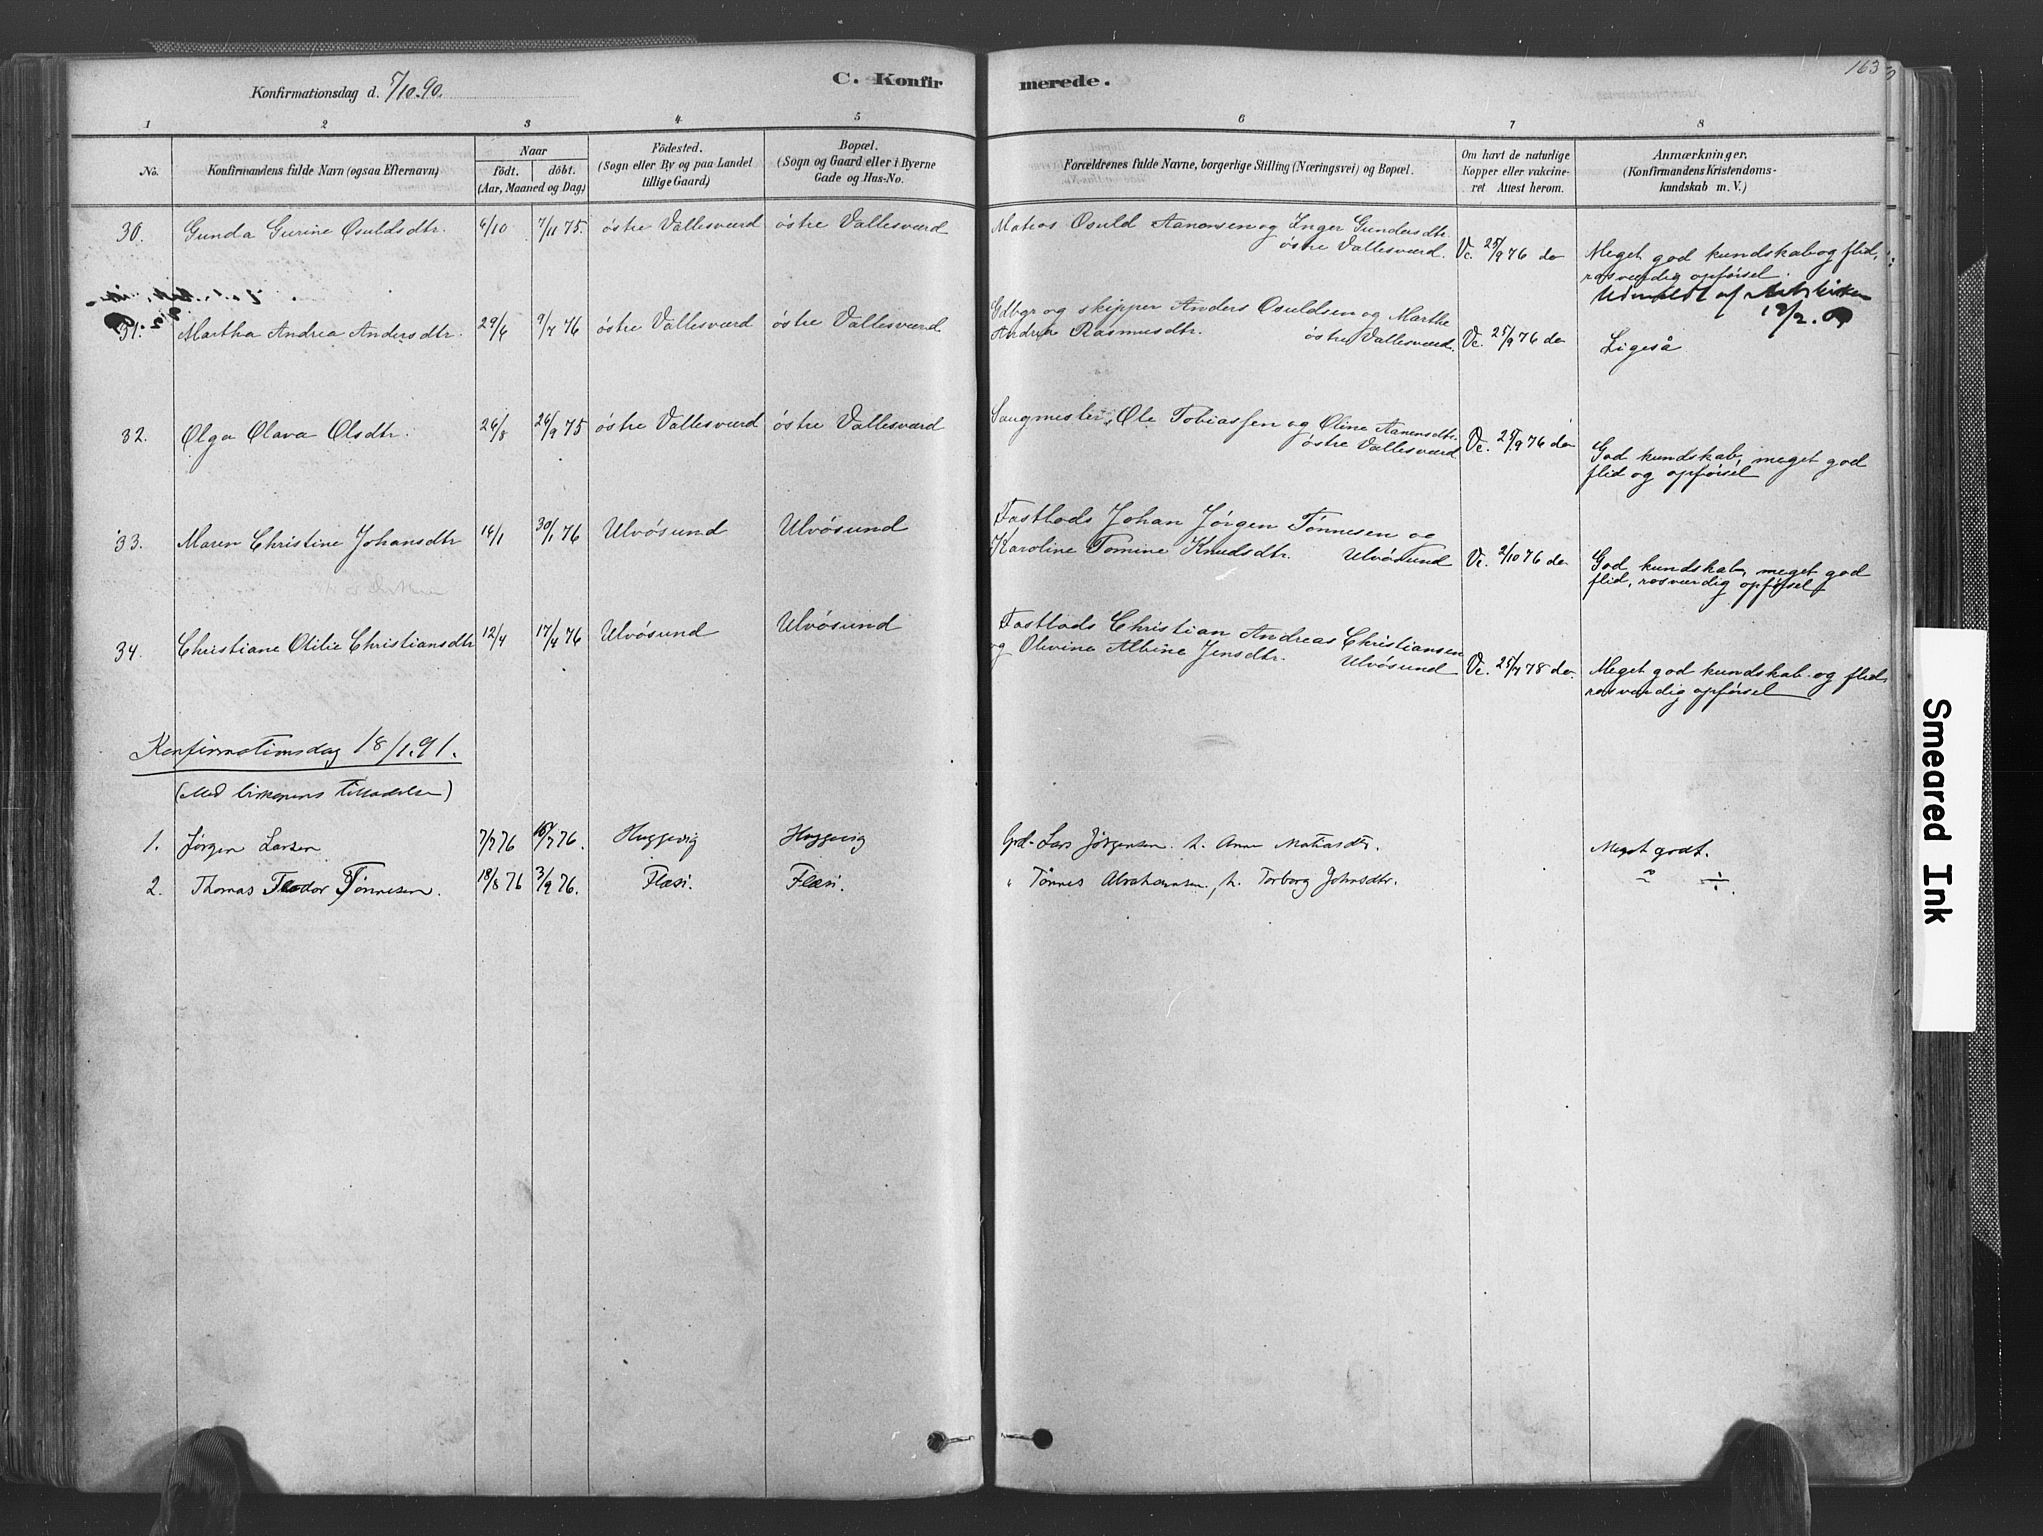 Konfirmationsdag d. 5/10.90.
C. Konfir
merede.
163
1 2 3 4 5 6 7 8
No.
Konfirmandens fulde Navn (ogsaa Efternavn)
Naar
födt. döbt.
(Aar, Maaned og Dag)
Födested.
(Sogn eller By og paa Landet
tillige Gaard)
Bopæl.
(Sogn og Gaard eller i Byerne
Gade og Hus-No.
Forældrenes fulde Navne, borgerlige Stilling (Næringsvei) og Bopæl.
Om havt de naturlige
Kopper eller vakcine-
ret Attest herom.
Anmærkninger.
(Konfirmandens Kristendoms-
kundskab m. V.)
30. Gunda Gurine Osuldsdtr. 6/10 7/11 75. østre Vallesværd østre Vallesværd Matros Osuld Aanensen og Inger Gundersdtr.
østre Vallesværd. Vc. 25/9 76 do
Meget god kundskab og flid,
rosværdig opførsel.
Udmeldt af
31. Martha Andrea Andersdtr. 29/6 9/7 76 østre Vallesværd østre Vallesværd Gdbgr og skipper Anders Osuldsen og Marthe
Andrea Rasmusdtr. østre Vallesværd. Vc. 25/9 76 do Ligeså
32. Olga Olava Olsdtr. 26/8 26/9 75 østre Vallesværd østre Vallesværd Saugmester Ole Tobiassen og Oline Aanensdtr.
østre Vallesværd Vc. 25/9 76 do
God kundskab, meget god
flid og opførsel
33. Maren Christine Johansdtr 14/1 30/1 76 Ulvøsund Ulvøsund Fastlods Johan Jørgen Tønnesen og
Karoline Tomine Knudsdtr. Ulvøsund Vc. 2/10 76 do
God kundskab, meget god
flid, rosværdig opførsel
34. Christiane Otilie Christiansdtr 12/4 17/4 76 Ulvøsund Ulvøsund Fastlods Christian Andreas Christiansen
og Olivine Albine Jensdtr. Ulvøsund Vc. 25/7 78 do.
Meget god kundskab og flid
rosværdig opførsel
Konfirmationsdag 18/1.91.
(Med biskopens tilladelse)
1. Jørgen Larsen 7/7 76 16/7 76. Høggevig Høggevig Grd. Lars Jørgensen h. Anne Matiasdtr. Meget godt.
2. Thomas Teodor Tønnesen. 18/8 76 3/9 76. Flæsi. Flæsi. " Tønnes Abrahamsen, h. Torborg Johnsdtr. " ÷.
Smeared Ink